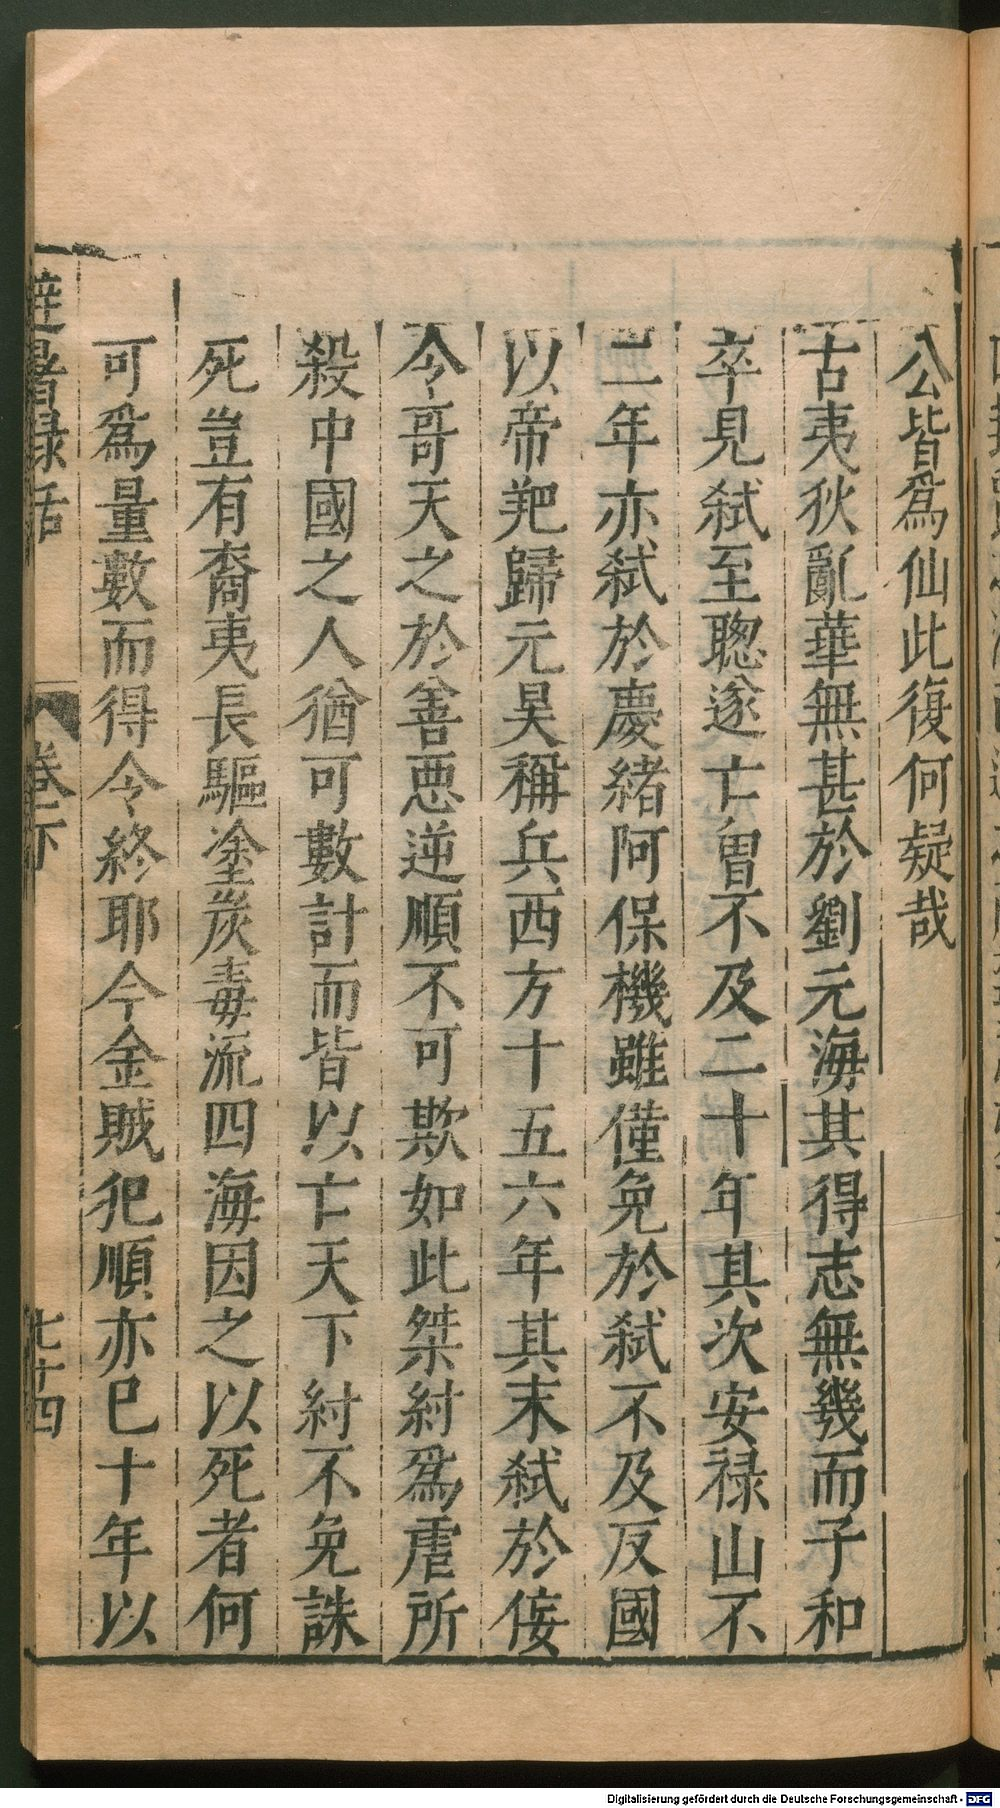 公皆爲仙此復何疑哉
古夷狄亂華無甚於劉元海其得志無幾而子和
卒見弑至聰遂亡曾不及二十年其次安禄山不
二年亦弑於慶緒阿保機雖僅免於弑不及反國
以帝羓歸元昊稱兵西方十五六年其末弑於佞
令哥天之於善惡逆順不可欺如此桀紂爲虐所
殺中國之人猶可數計而皆以亡天下紂不免誅
死豈有裔夷長驅塗炭毒流四海因之以死者何
可爲量數而得令終耶今金賊犯順亦巳十年以
避暑録話
卷下
七十四
Digitalisierung gefördert durch die Deutsche Forschungsgemeinschaft - DFG